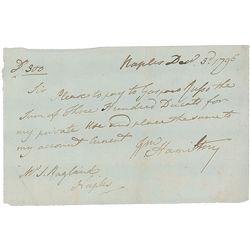 D. 300 Naples Decr 3d 1796
Sir Please to pay to Gaspare Russo the
Sum of Three Hundred Ducats for
my private Use and place the same to
my account Current
Wm Hamilton
Mr. S. Ragland
Naples